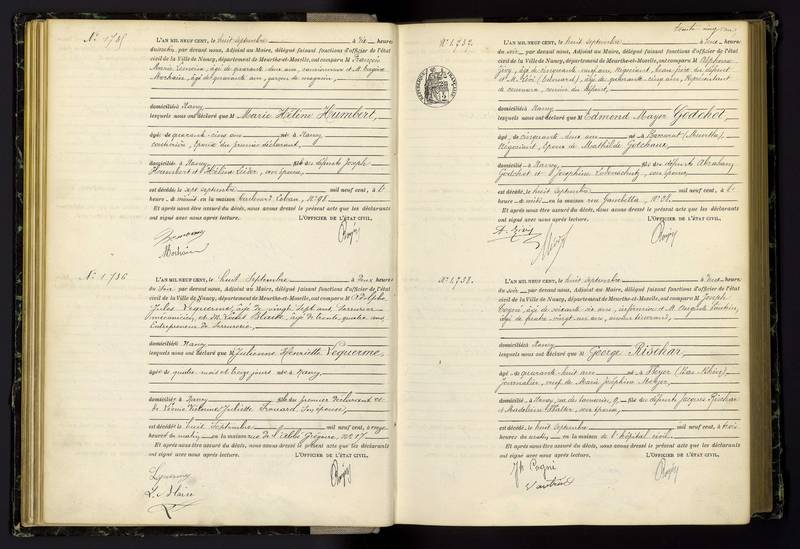 N° 1735
L'AN MIL NEUF CENT, le huit Septembre à dix heures
du matin, par devant nous, Adjoint au Maire, délégué faisant fonctions d'officier de l'état
civil de la Ville de Nancy, département de Meurthe-et-Moselle, ont comparu M François
Marie, âgé de quarante deux ans, et M. Eugène
âgé de quarante ans, garçon de magasin,
domiciliés à Nancy
lesquels nous ont déclaré que M Marie Hélène Humbert,
âgée de quarante cinq ans née à Nancy
épouse du premier déclarant,
domiciliée à Nancy fille des défunts Joseph
Humbert et Hélène, son épouse,
est décédée le sept septembre mil neuf cent, à 1
heure de en la maison N° 98.
Et après nous être assuré du décès, nous avons dressé le présent acte que les déclarants
ont signé avec nous après lecture. L'OFFICIER DE L'ÉTAT CIVIL,
N° 1.736
L'AN MIL NEUF CENT, le huit Septembre à deux heures
du Soir par devant nous, Adjoint au Maire, délégué faisant fonctions d'officier de l'état
civil de la Ville de Nancy, département de Meurthe-et-Moselle, ont comparu M Adolphe
Jules Lequerme, âgé de vingt sept ans, Serrurier
mécanicien, et M. Louis Blaise, âgé de trente quatre ans
Entrepreneur de Serrurerie,
domiciliés à Nancy
lesquels nous ont déclaré que M Julienne Henriette Lequerme
âgée de quatre mois et treize jours née à Nancy,
domiciliée à Nancy fille du premier déclarant et
de Juliette Frouard, son épouse,
est décédée le huit Septembre mil neuf cent, à onze
heures du matin en la maison rue de l'Abbé Grégoire, N° 17
Et après nous être assuré du décès, nous avons dressé le présent acte que les déclarants
ont signé avec nous après lecture. L'OFFICIER DE L'ÉTAT CIVIL,
Lequerme
L. Blaise
N° 1.737.
L'AN MIL NEUF CENT, le huit septembre à deux heures
du soir par devant nous, Adjoint au Maire, délégué faisant fonctions d'officier de l'état
civil de la Ville de Nancy, département de Meurthe-et-Moselle, ont comparu M Alphonse
Lévy, âgé de cinquante neuf ans, négociant, beau-père du défunt
et M. Lévi (Edmond), âgé de quarante cinq ans, Représentant
de commerce, cousin du défunt,
domiciliés à Nancy
lesquels nous ont déclaré que M Edmond Mayer Godchot,
âgé de cinquante deux ans né à Baccarat (Meurthe),
Négociant, époux de Mathilde Gotchaux,
domicilié à Nancy, fils des défunts Abraham
Godchot et Joséphine, son épouse,
est décédé le huit septembre mil neuf cent, à 1
heure en la maison rue Gambetta, N° 28.
Et après nous être assuré du décès, nous avons dressé le présent acte que les déclarants
ont signé avec nous après lecture. L'OFFICIER DE L'ÉTAT CIVIL,
A. Lévy
N° 1.738.
L'AN MIL NEUF CENT, le huit septembre à deux heures
du soir par devant nous, Adjoint au Maire, délégué faisant fonctions d'officier de l'état
civil de la Ville de Nancy, département de Meurthe-et-Moselle, ont comparu M Joseph
Cogné, âgé de soixante six ans, infirmier et M. Auguste Vautrin,
âgé de quatre-vingt un ans, ancien,
domiciliés à Nancy
lesquels nous ont déclaré que M George Rischar,
âgé de quarante huit ans né à (Bas-Rhin),
journalier, veuf de Marie Joséphine Metzger,
domicilié à Nancy, rue des tanneries, 9, fils des défunts Jacques Rischar
et Madeleine Walter, son épouse,
est décédé le huit septembre mil neuf cent, à trois
heures du matin en la maison de l'hôpital civil
Et après nous être assuré du décès, nous avons dressé le présent acte que les déclarants
ont signé avec nous après lecture. L'OFFICIER DE L'ÉTAT CIVIL,
Jh Cogné
Vautrin